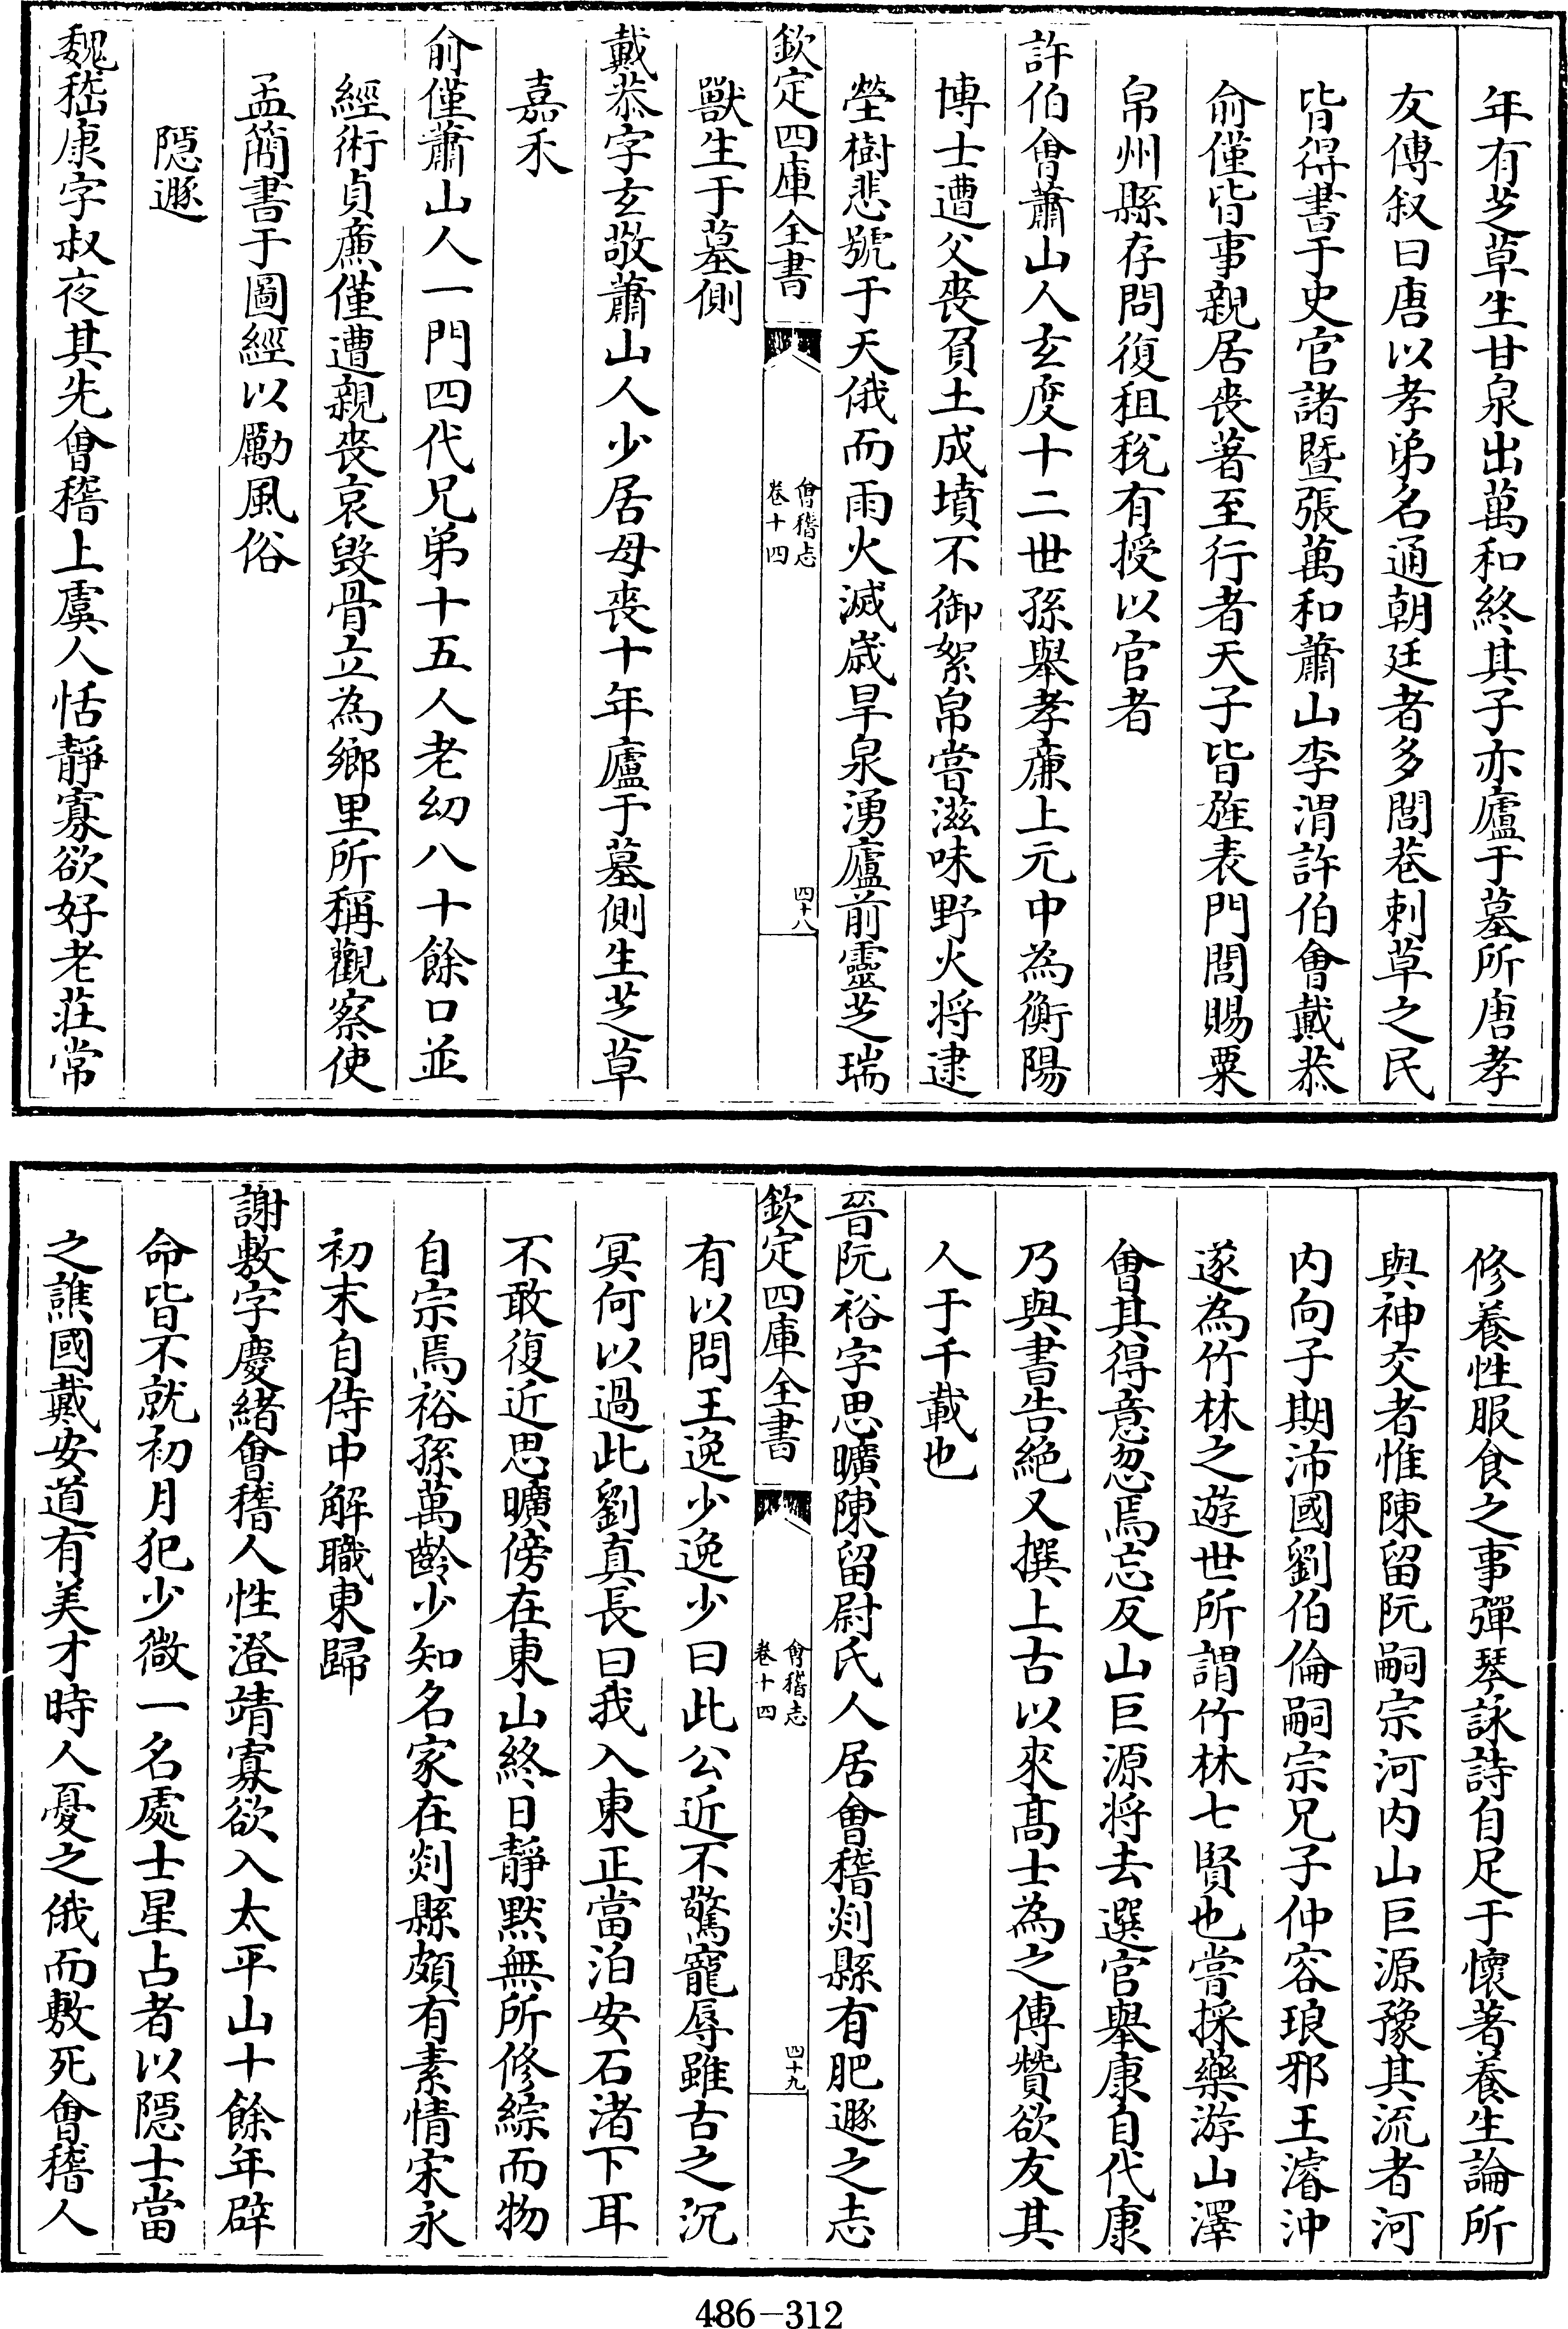 年有芝草生甘泉出萬和終其子亦廬于墓所唐孝
友傳叙曰唐以孝弟名通朝廷者多閭巷刺草之民
皆得書于史官諸暨張萬和蕭山李渭許伯會戴恭
俞僅皆事親居喪著至行者天子皆旌表門閭賜粟
帛州縣存問復租稅有授以官者
許伯會蕭山人玄度十二世孫舉孝廉上元中為衡陽
博士遭父喪負土成墳不御絮帛嘗滋味野火將逮
塋樹悲號于天俄而雨火滅歲旱泉湧廬前靈芝瑞
欽定四庫全書
會稽志
卷十四
四十八
獸生于墓側
戴恭字玄敬蕭山人少居母喪十年廬于墓側生芝草
嘉禾
俞僅蕭山人一門四代兄弟十五人老幼八十餘口並
經術貞廉僅遭親喪哀毀骨立為鄉里所稱觀察使
孟簡書于圖經以勵風俗
隱遯
魏嵇康字叔夜其先會稽上虞人恬靜寡欲好老莊常
修養性服食之事彈琴詠詩自足于懷著養生論所
與神交者惟陳留阮嗣宗河内山巨源豫其流者河
内向子期沛國劉伯倫嗣宗兄子仲容琅邪王濬沖
遂為竹林之遊世所謂竹林七賢也嘗採藥游山澤
會其得意忽焉忘反山巨源將去選官舉康自代康
乃與書告絶又撰上古以來髙士為之傳贊欲友其
人于千載也
晉阮裕字思曠陳留尉氏人居會稽剡縣有肥遯之志
欽定四庫全書
會稽志
卷十四
四十九
有以問王逸少逸少曰此公近不驚寵辱雖古之沉
冥何以過此劉真長曰我入東正當泊安石渚下耳
不敢復近思曠傍在東山終日靜默無所修綜而物
自宗焉裕孫萬齡少知名家在剡縣頗有素情宋永
初末自侍中解職東歸
謝敷字慶緒會稽人性澄靖寡欲入太平山十餘年辟
命皆不就初月犯少微一名處士星占者以隱士當
之譙國戴安道有美才時人憂之俄而敷死會稽人
486-312